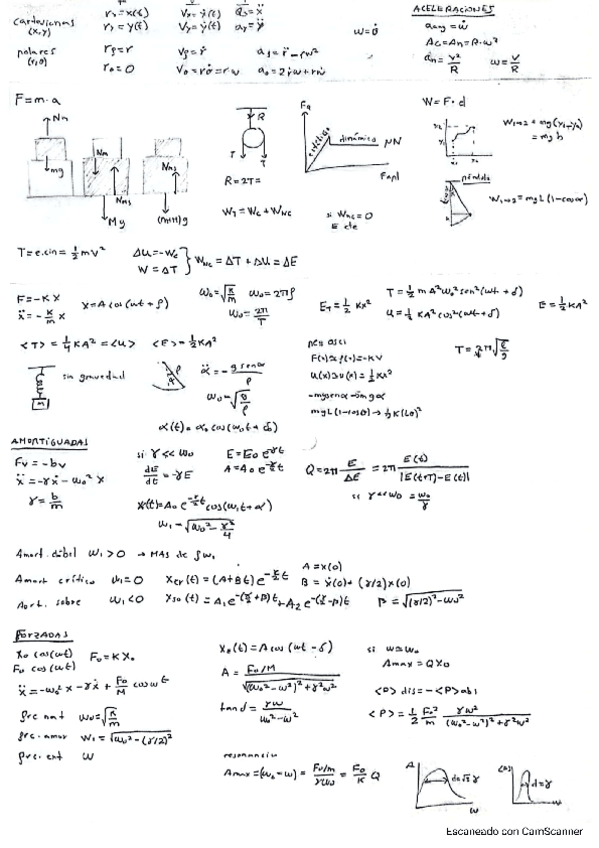 cartesianas (x,y)
rx = x(t) Vx = ẋ(t) ax = ẍ
ry = y(t) Vy = ẏ(t) ay = ÿ
polares (r,θ)
rρ = r Vρ = ṙ aρ = r̈ - rω²
rθ = 0 Vθ = rθ̇ = rω aθ = 2ṙω + rω̇
ω = θ̇
ACELERACIONES
aang = ω̇
Ac = An = R·ω²
an = v²/R ω = v/R
F = m·a
Nm
mg
Nm
NMs
Mg
Nm
(m+M)g
R
T T
R = 2T =
WT = WC + WNC
Fa
estático
dinámico
μN
Fapl
si WNC = 0
E cte
W = F·d
W1→2 = mg(y1-y2)
= mgh
péndulo
W1→2 = mgL(1-cosα)
T = e.cin = ½mv²
ΔU = -Wc
W = ΔT
WNC = ΔT + ΔU = ΔE
F = -Kx
ẍ = -k/m x
x = A cos(ωt + ρ)
ω0 = √(k/m) ω0 = 2πρ
ω0 = 2π/T
ET = ½ Kx²
T = ½ m A²ω0² sen²(ωt + δ)
U = ½ KA² cos²(ωt + δ)
E = ½KA²
<T> = ¼KA² = <U> <E> = ½KA²
sin gravedad
M
α ρ
α̈ = -g senα/ρ
ω0 = √(g/ρ)
α(t) = α0 cos(ω0t + δ)
F(x) ≃ ρ(x) = -Kx
U(x) ≃ U(x) = ½Kx²
-mgsenα → -mgα
mgL(1-cosθ) → ½K(Lθ)²
AMORTIGUADAS
Fv = -bv
ẍ = -γẋ - ω0² x
γ = b/m
si γ << ω0
dE/dt = -γE
E = E0 e^-γt
A = A0 e^-γ/2 t
x(t) = A0 e^-γ/2 t cos(ω1t + α)
ω1 = √(ω0² - γ²/4)
Q = 2π E/ΔE = 2π E(t)/|E(t+T) - E(t)|
si γ << ω0 ≃ ω0/γ
Amort. débil ω1 > 0 → MAS de
Amort crítico ω1 = 0 xcr(t) = (A+Bt) e^-γ/2 t
A = x(0)
B = ẋ(0) + (γ/2)x(0)
sobre ω1 < 0 xso(t) = A1 e^-(γ/2+β)t + A2 e^-(γ/2-β)t β = √((γ/2)² - ω0²)
FORZADAS
X0 cos(ωt)
F0 cos(ωt)
F0 = KX0
ẍ = -ω0² x - γẋ + F0/M cosωt
frc nat ω0 = √(k/m)
frc. amor ω1 = √(ω0² - (γ/2)²)
frc. ext ω
A = F0/M / √((ω0² - ω²)² + γ²ω²)
tan δ = γω/(ω0² - ω²)
si ω ≃ ω0
Amax = QX0
<P> dis = -<P>abs
<P> = ½ F0²/m γω²/((ω0² - ω²)² + γ²ω²)
resonancia
Amax = (ω0 = ω) = F0/m/γω0 = F0/K Q
A
ω
d = γ
ω
Escaneado con CamScanner